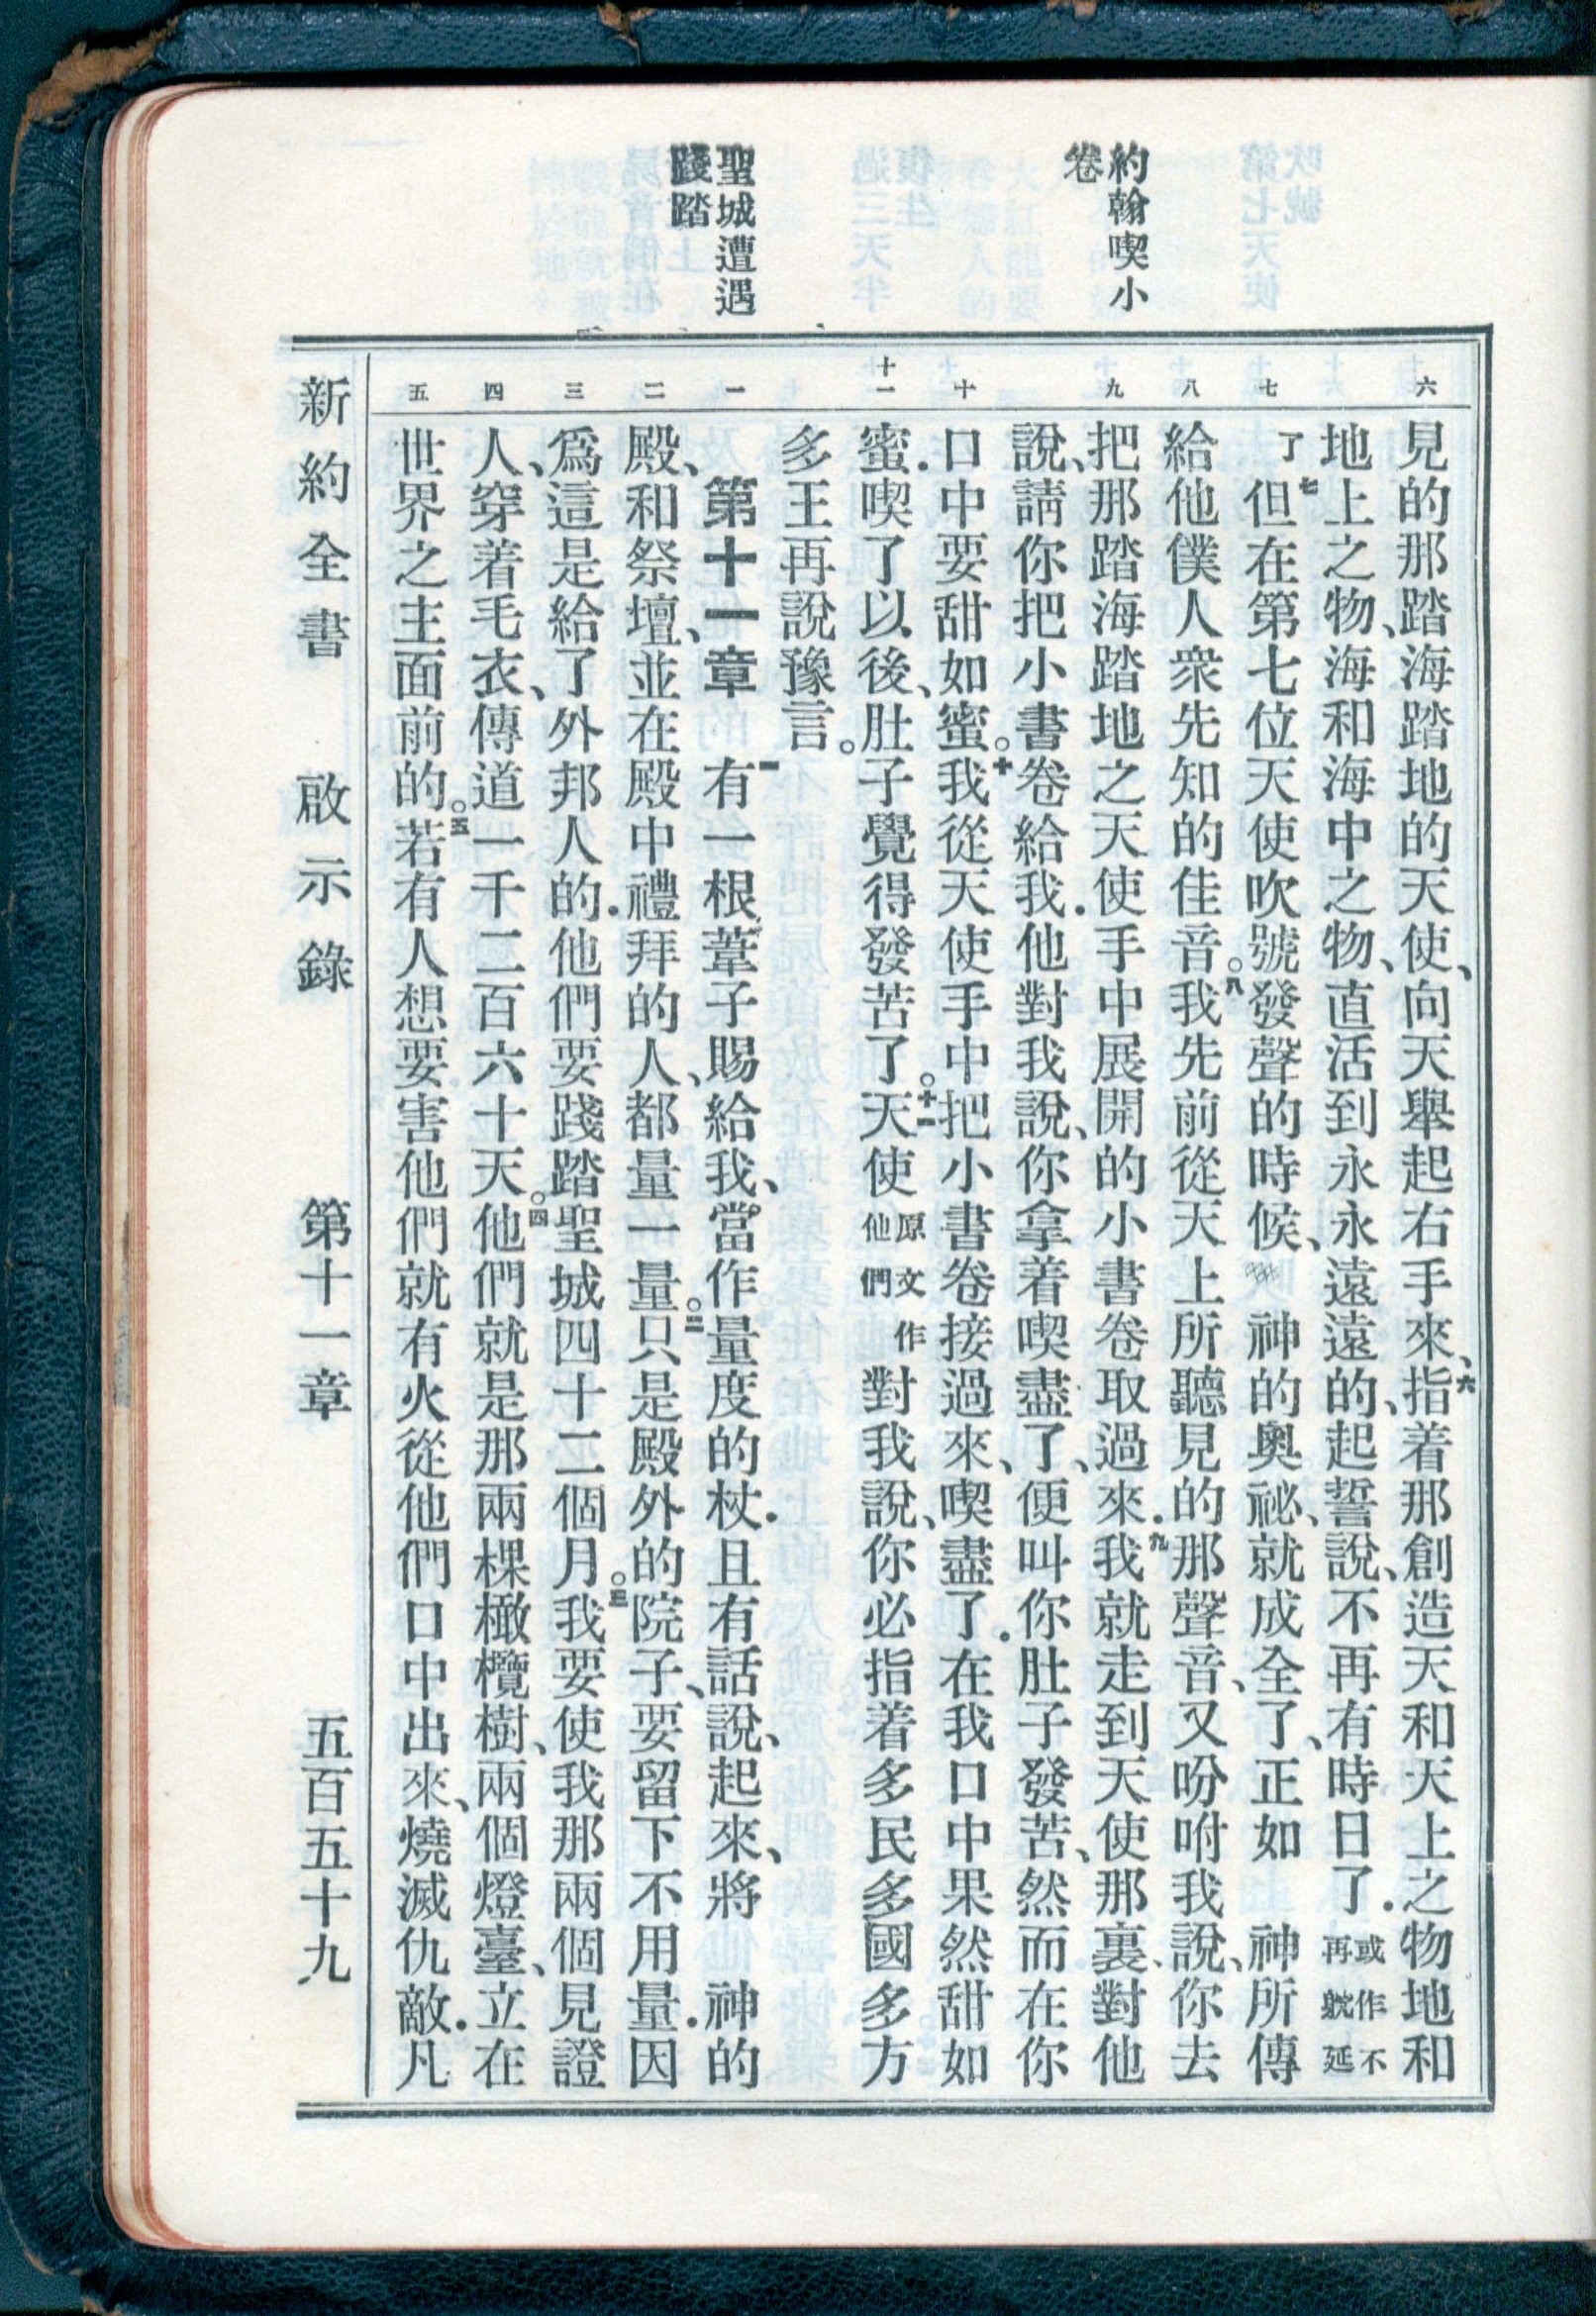 約翰喫小
卷
聖城遭遇
踐踏
六
七
八
九
十
十一
一
二
三
四
五
見的那踏海踏地的天使、向天舉起右手來、六指着那創造天和天上之物地和
地上之物、海和海中之物、直活到永永遠遠的、起誓說、不再有時日了．或作不再躭延
了七但在第七位天使吹號發聲的時候、神的奧祕、就成全了、正如 神所傳
給他僕人衆先知的佳音。八我先前從天上所聽見的那聲音、又吩咐我說、你去
把那踏海踏地之天使手中展開的小書卷取過來．九我就走到天使那裏、對他
說、請你把小書卷給我．他對我說、你拿着喫盡了、便叫你肚子發苦、然而在你
口中要甜如蜜。十我從天使手中把小書卷接過來、喫盡了．在我口中果然甜如
蜜．喫了以後、肚子覺得發苦了。十一天使原文作他們對我說、你必指着多民多國多方
多王再說豫言。
第十一章 一有一根葦子賜給我、當作量度的杖．且有話說、起來、將 神的
殿、和祭壇、並在殿中禮拜的人、都量一量。二只是殿外的院子、要留下不用量．因
爲這是給了外邦人的．他們要踐踏聖城四十二個月。三我要使我那兩個見證
人、穿着毛衣、傳道一千二百六十天。四他們就是那兩棵橄欖樹、兩個燈臺、立在
世界之主面前的。五若有人想要害他們就有火從他們口中出來、燒滅仇敵．凡
新約全書 啟示錄 第十一章 五百五十九